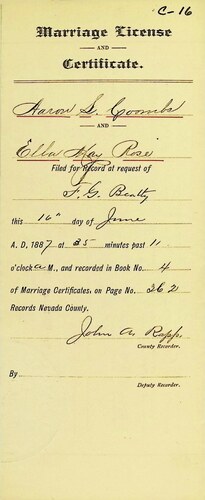 C-16
Marriage License
AND
Certificate.
Aaron S. Coombs
AND
Ella May Rose
Filed for Record at request of
F. G. Beatty
this 16" day of June
A. D, 1887 at 35 minutes past 11
o'clock a M., and recorded in Book No. 4
of Marriage Certificates, on Page No. 262
Records Nevada County.
John A. Rapp.
County Recorder.
By
Deputy Recorder.